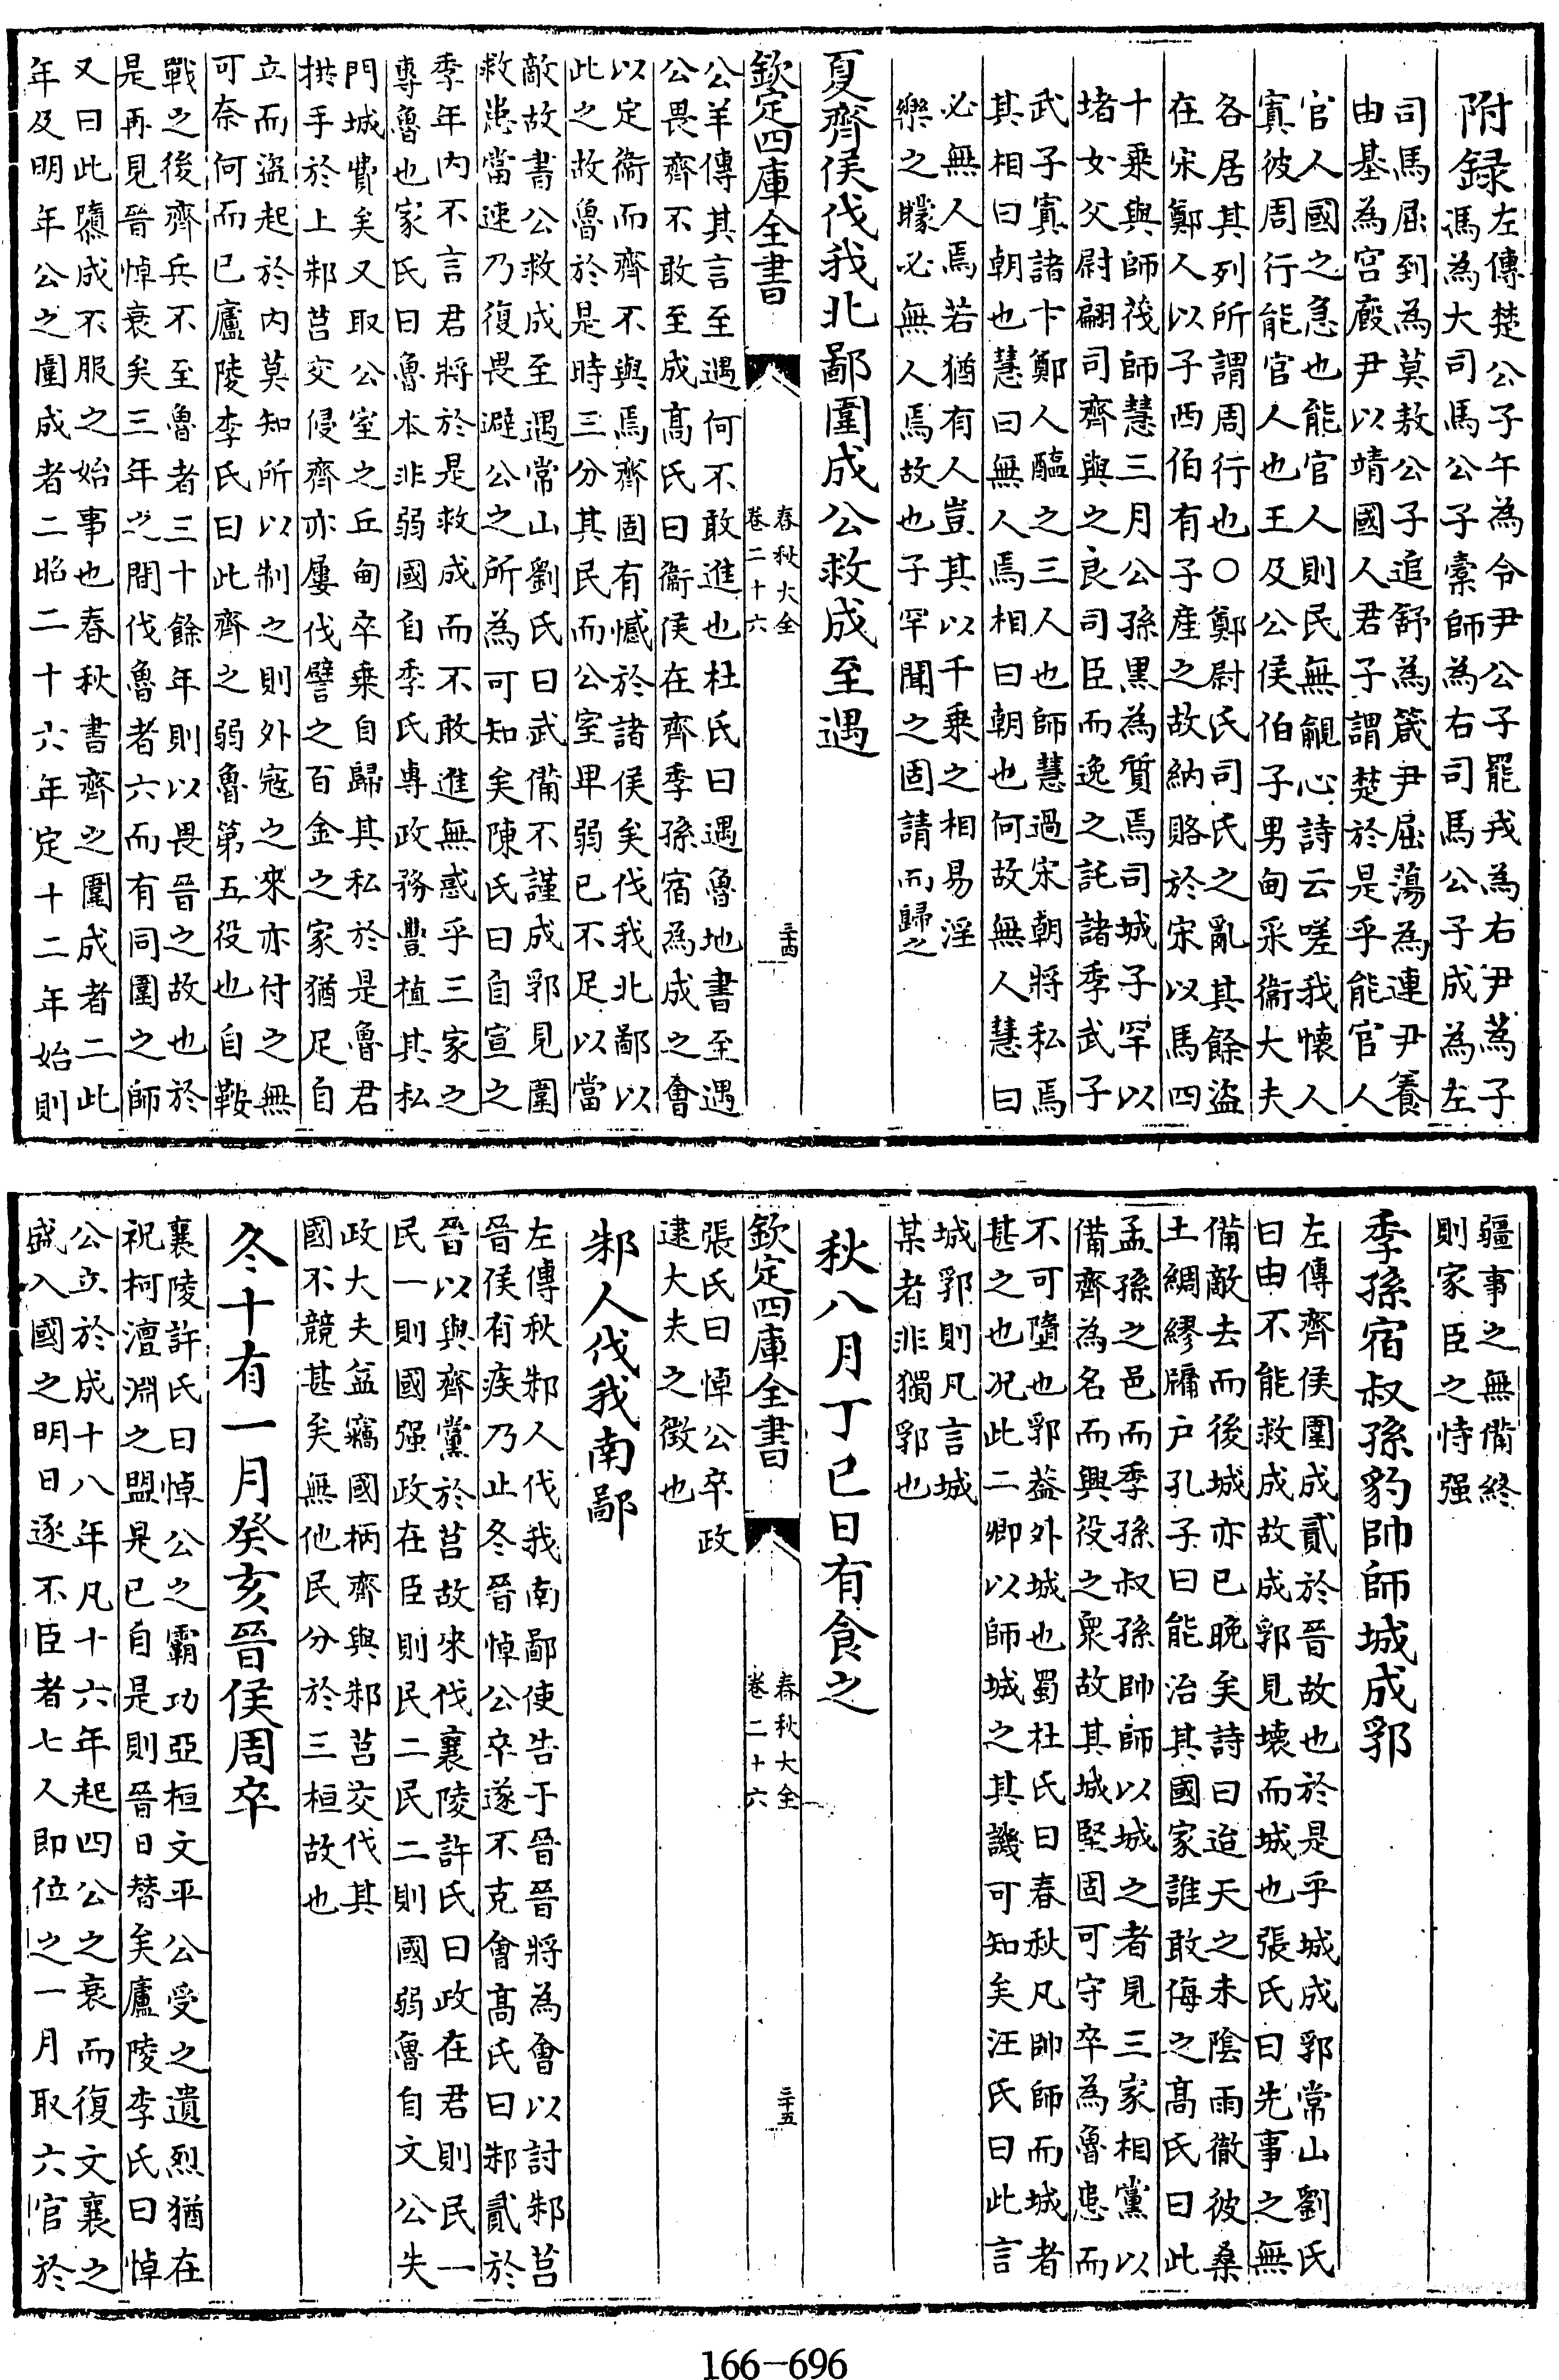 附録左傳楚公子午為令尹公子罷戎為右尹蒍子
馮為大司馬公子橐師為右司馬公子成為左
司馬屈到為莫敖公子追舒為箴尹屈蕩為連尹養
由基為宮廐尹以靖國人君子謂楚於是乎能官人
官人國之急也能官人則民無覦心詩云嗟我懷人
寘彼周行能官人也王及公侯伯子男甸采衛大夫
各居其列所謂周行也○鄭尉氏司氏之亂其餘盜
在宋鄭人以子西伯有子產之故納賂於宋以馬四
十乘與師茷師慧三月公孫黑為質焉司城子罕以
堵女父尉翩司齊與之良司臣而逸之託諸季武子
武子寘諸卞鄭人醢之三人也師慧過宋朝將私焉
其相曰朝也慧曰無人焉相曰朝也何故無人慧曰
必無人焉若猶有人豈其以千乘之相易淫
樂之矇必無人焉故也子罕聞之固請而歸之
夏齊侯伐我北鄙圍成公救成至遇
欽定四庫全書
春秋大全
卷二十六
三十四
公羊傳其言至遇何不敢進也杜氏曰遇魯地書至遇
公畏齊不敢至成髙氏曰衞侯在齊季孫宿為成之會
以定衞而齊不與焉齊固有憾於諸侯矣伐我北鄙以
此之故魯於是時三分其民而公室卑弱已不足以當
敵故書公救成至遇常山劉氏曰武備不謹成郛見圍
救患當速乃復畏避公之所為可知矣陳氏曰自宣之
季年内不言君將於是救成而不敢進無惑乎三家之
專魯也家氏曰魯本非弱國自季氏專政務豐植其私
門城費矣又取公室之丘甸卒乘自歸其私於是魯君
拱手於上邾莒交侵齊亦屢伐譬之百金之家猶足自
立而盜起於内莫知所以制之則外寇之來亦付之無
可奈何而已廬陵李氏曰此齊之弱魯第五役也自鞍
戰之後齊兵不至魯者三十餘年則以畏晉之故也於
是再見晉悼衰矣三年之間伐魯者六而有同圍之師
又曰此隳成不服之始事也春秋書齊之圍成者二此
年及明年公之圍成者二昭二十六年定十二年始則
疆事之無備終
則家臣之恃强
季孫宿叔孫豹帥師城成郛
左傳齊侯圍成貳於晉故也於是乎城成郛常山劉氏
曰由不能救成故成郛見壊而城也張氏曰先事之無
備敵去而後城亦已晚矣詩曰迨天之未陰雨徹彼桑
土綢繆牖户孔子曰能治其國家誰敢侮之髙氏曰此
孟孫之邑而季孫叔孫帥師以城之者見三家相黨以
備齊為名而興役之衆故其城堅固可守卒為魯患而
不可墮也郛葢外城也蜀杜氏曰春秋凡帥師而城者
甚之也况此二卿以師城之其譏可知矣汪氏曰此言
城郛則凡言城
某者非獨郛也
秋八月丁巳日有食之
欽定四庫全書
春秋大全
卷二十六
三十五
張氏曰悼公卒政
逮大夫之徵也
邾人伐我南鄙
左傳秋邾人伐我南鄙使告于晉晉將為會以討邾莒
晉侯有疾乃止冬晉悼公卒遂不克會髙氏曰邾貳於
晉以與齊黨於莒故來伐襄陵許氏曰政在君則民一
民一則國强政在臣則民二民二則國弱魯自文公失
政大夫盆竊國柄齊與邾莒交伐其
國不競甚矣無他民分於三桓故也
冬十有一月癸亥晉侯周卒
襄陵許氏曰悼公之霸功亞桓文平公受之遺烈猶在
祝柯澶淵之盟是已自是則晉日替矣廬陵李氏曰悼
公立於成十八年凡十六年起四公之衰而復文襄之
盛入國之明日逐不臣者七人即位之一月取六官於
166-696